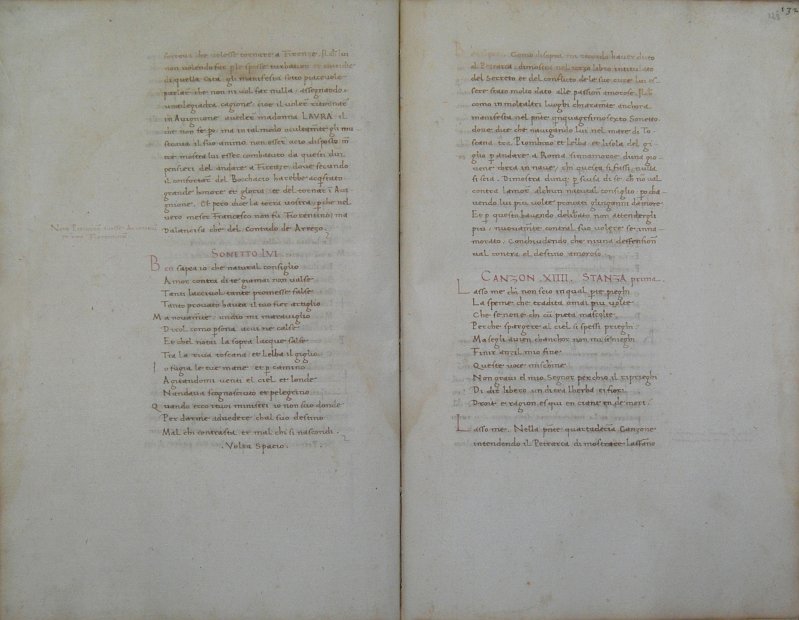 che volesse tornare a Firenze. Il che lui
non volendo far, ple spesse turbation et discordie
di quella Cita gli manifesta sotto piacevole
parlar che non ni vol far nulla, assegnando
una legiadra cagione, cioe il voler ritornare
in Avignione a veder madonna LAURA. Il
che non se po ma in tal modo ocultamente gli
il suo animo non esser acto disposto
mostra lui esser combatuto da questi dui
pensieri del andare a Firenze, dove secundo
il confortar del Bocchacio harebbe acqstato
grande honore et gloria, et del tornar i Avi
gnione. Et pero dice la terra vostra, pche nel
vero meser Francesco non fu Fiorentino, ma
da lancisa che del Contado de Arrezo.
SONETTO LVI
Ben sapea io che natural consiglio
Amor contra di te giamai non valse
Tanti lacciuol tante promesse false
Tanto provato havea il tuo fier artiglio
Ma novamte, undio mi maraviglio
Dirol, como psona acui ne calse
Et chel notai la sopra lacque salse
Tra la riva toscana et Lelba il giglio
Io fugia le tue mane et p camino
Agitandomi i venti el ciel et londe
Nandava scognosciuto et pelegrino
Quando ecco i tuoi ministri io non so donde
Per darme advedere chal suo destino
Mal chi contrasta et mal chi si nasconde.
Volta Spacio.
132
Como disopra mi ricordo haver dicto
el Petrarca dimostra nel terzo libro intitulato
del Secreto et del conflicto de le sue cure lui es
sere stato molto dato alle passion amorose. Il che
como in molti altri luoghi chiaramte anchora
manifesta nel pnte qnquagesimosexto Sonetto
dove dice che navigando lui nel mare di To
scana tra Piombino et Lelba et lisola del gi
glio p andare a Roma sinnamoro duna gio
vene chera in nave, chi questa si fusse nulla
si scia. Dimostra dunq p scusa di se ch no val
contra lamor alchun natural consiglio, po cha
vendo lui piu volte provati glinganni damore
Et p questo havendo deliberato non attendergli
piu, novamente contral suo volere se inna
morato. Conchiudendo che niuna deffension
val contra el destino amoroso.
CANZON XIIII. STANZA prima.
Lasso me chi non scio in qual pte pieghi
La speme che tradita omai piu volte
Che se non e chi cu pieta mascolte
Perche spargere al ciel si spessi prieghi
Ma segli avien chanchor non mi si nieghi
Finir anzil mio fine
Queste voce mischine
Non gravi el mio Segnor perchio il ripreghi
Di dir libero un di tra lherba et fiori
Drote et ragion es qui eu ciant em demori
Lasso me. Nella pnte quartadecia Canzone
intendendo il Petrarca di mostrare Laffano